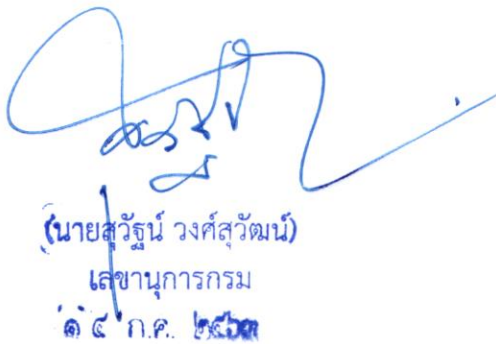 (นายสุวัฐน์ วงศ์สุวัฒน์)
เลขานุการกรม
๑๔ ก.ค.